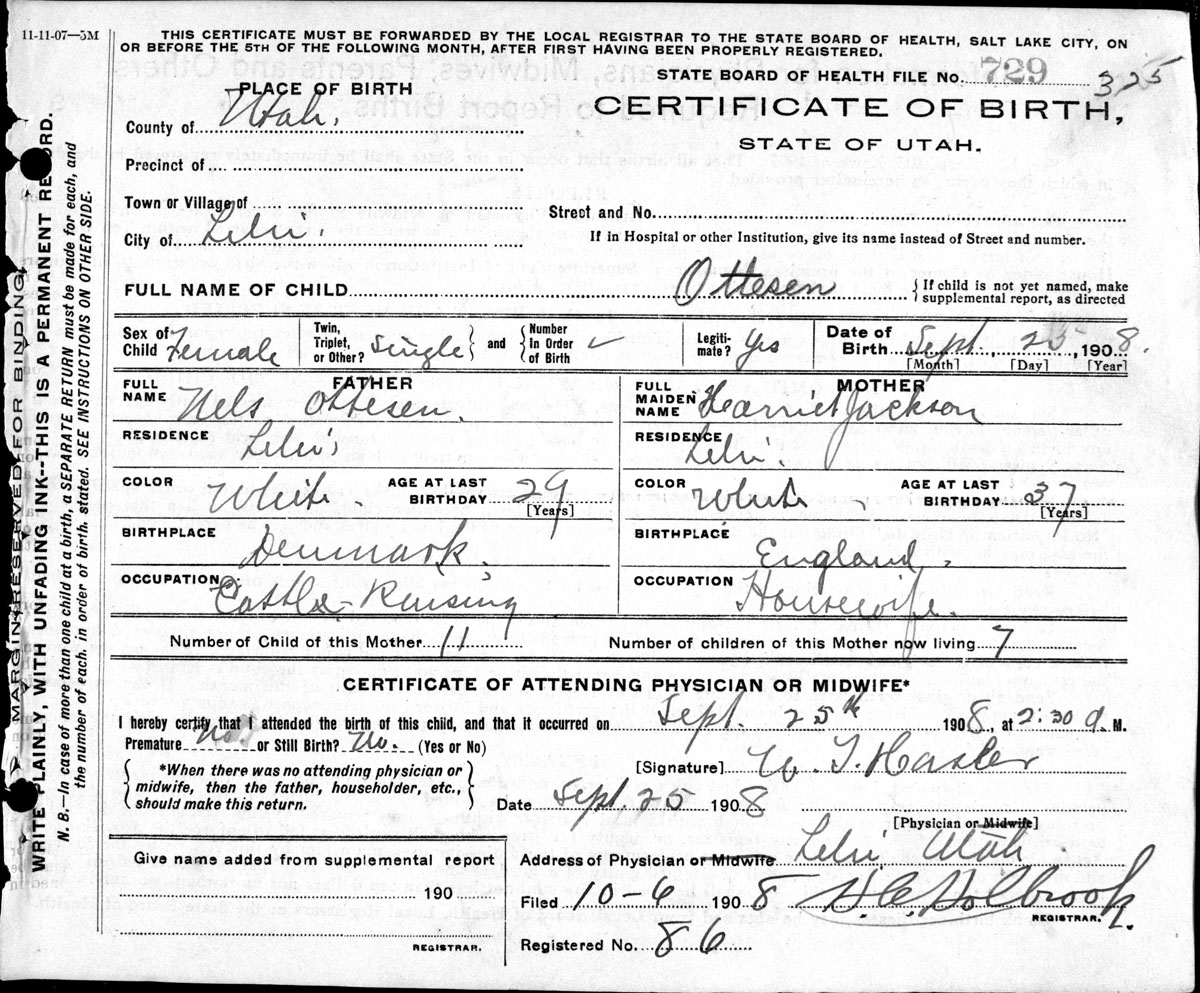 11-11-07—5M
THIS CERTIFICATE MUST BE FORWARDED BY THE LOCAL REGISTRAR TO THE STATE BOARD OF HEALTH, SALT LAKE CITY, ON
OR BEFORE THE 5TH OF THE FOLLOWING MONTH, AFTER FIRST HAVING BEEN PROPERLY REGISTERED.
STATE BOARD OF HEALTH FILE NO. 729 325
PLACE OF BIRTH
CERTIFICATE OF BIRTH,
STATE OF UTAH.
County of Utah,
Precinct of
Town or Village of
Street and No.
City of Lehi.
If in Hospital or other Institution, give its name instead of Street and number.
FULL NAME OF CHILD Ottesen { If child is not yet named, make
supplemental report, as directed
Sex of Child Female
Twin, Triplet, or Other? Single } and { Number In Order of Birth ✓
Legiti-mate? Yes
Date of Birth Sept. 25, 1908.
[Month] [Day] [Year]
FATHER
FULL NAME Nels Ottesen
RESIDENCE Lehi
COLOR White AGE AT LAST BIRTHDAY 29
[Years]
BIRTHPLACE Denmark,
OCCUPATION Cattle-
MOTHER
FULL MAIDEN NAME Harriet Jackson
RESIDENCE Lehi.
COLOR White AGE AT LAST BIRTHDAY 37
[Years]
BIRTHPLACE England.
OCCUPATION Housewife.
Number of Child of this Mother 11 Number of children of this Mother now living 7
CERTIFICATE OF ATTENDING PHYSICIAN OR MIDWIFE*
I hereby certify that I attended the birth of this child, and that it occurred on Sept. 25th 1908, at 2:30 a. M.
Premature No. or Still Birth? No. (Yes or No)
{ *When there was no attending physician or
midwife, then the father, householder, etc.,
should make this return. }
[Signature]
Date Sept. 25 1908
[Physician or Midwife]
Give name added from supplemental report
190
REGISTRAR.
Address of Physician or Midwife Lehi Utah
Filed 10-6 1908 H. C. Holbrook.
REGISTRAR.
Registered No. 86
MARGIN RESERVED FOR BINDING
WRITE PLAINLY, WITH UNFADING INK--THIS IS A PERMANENT RECORD.
N. B.—In case of more than one child at a birth, a SEPARATE RETURN must be made for each, and
the number of each, in order of birth, stated. SEE INSTRUCTIONS ON OTHER SIDE.